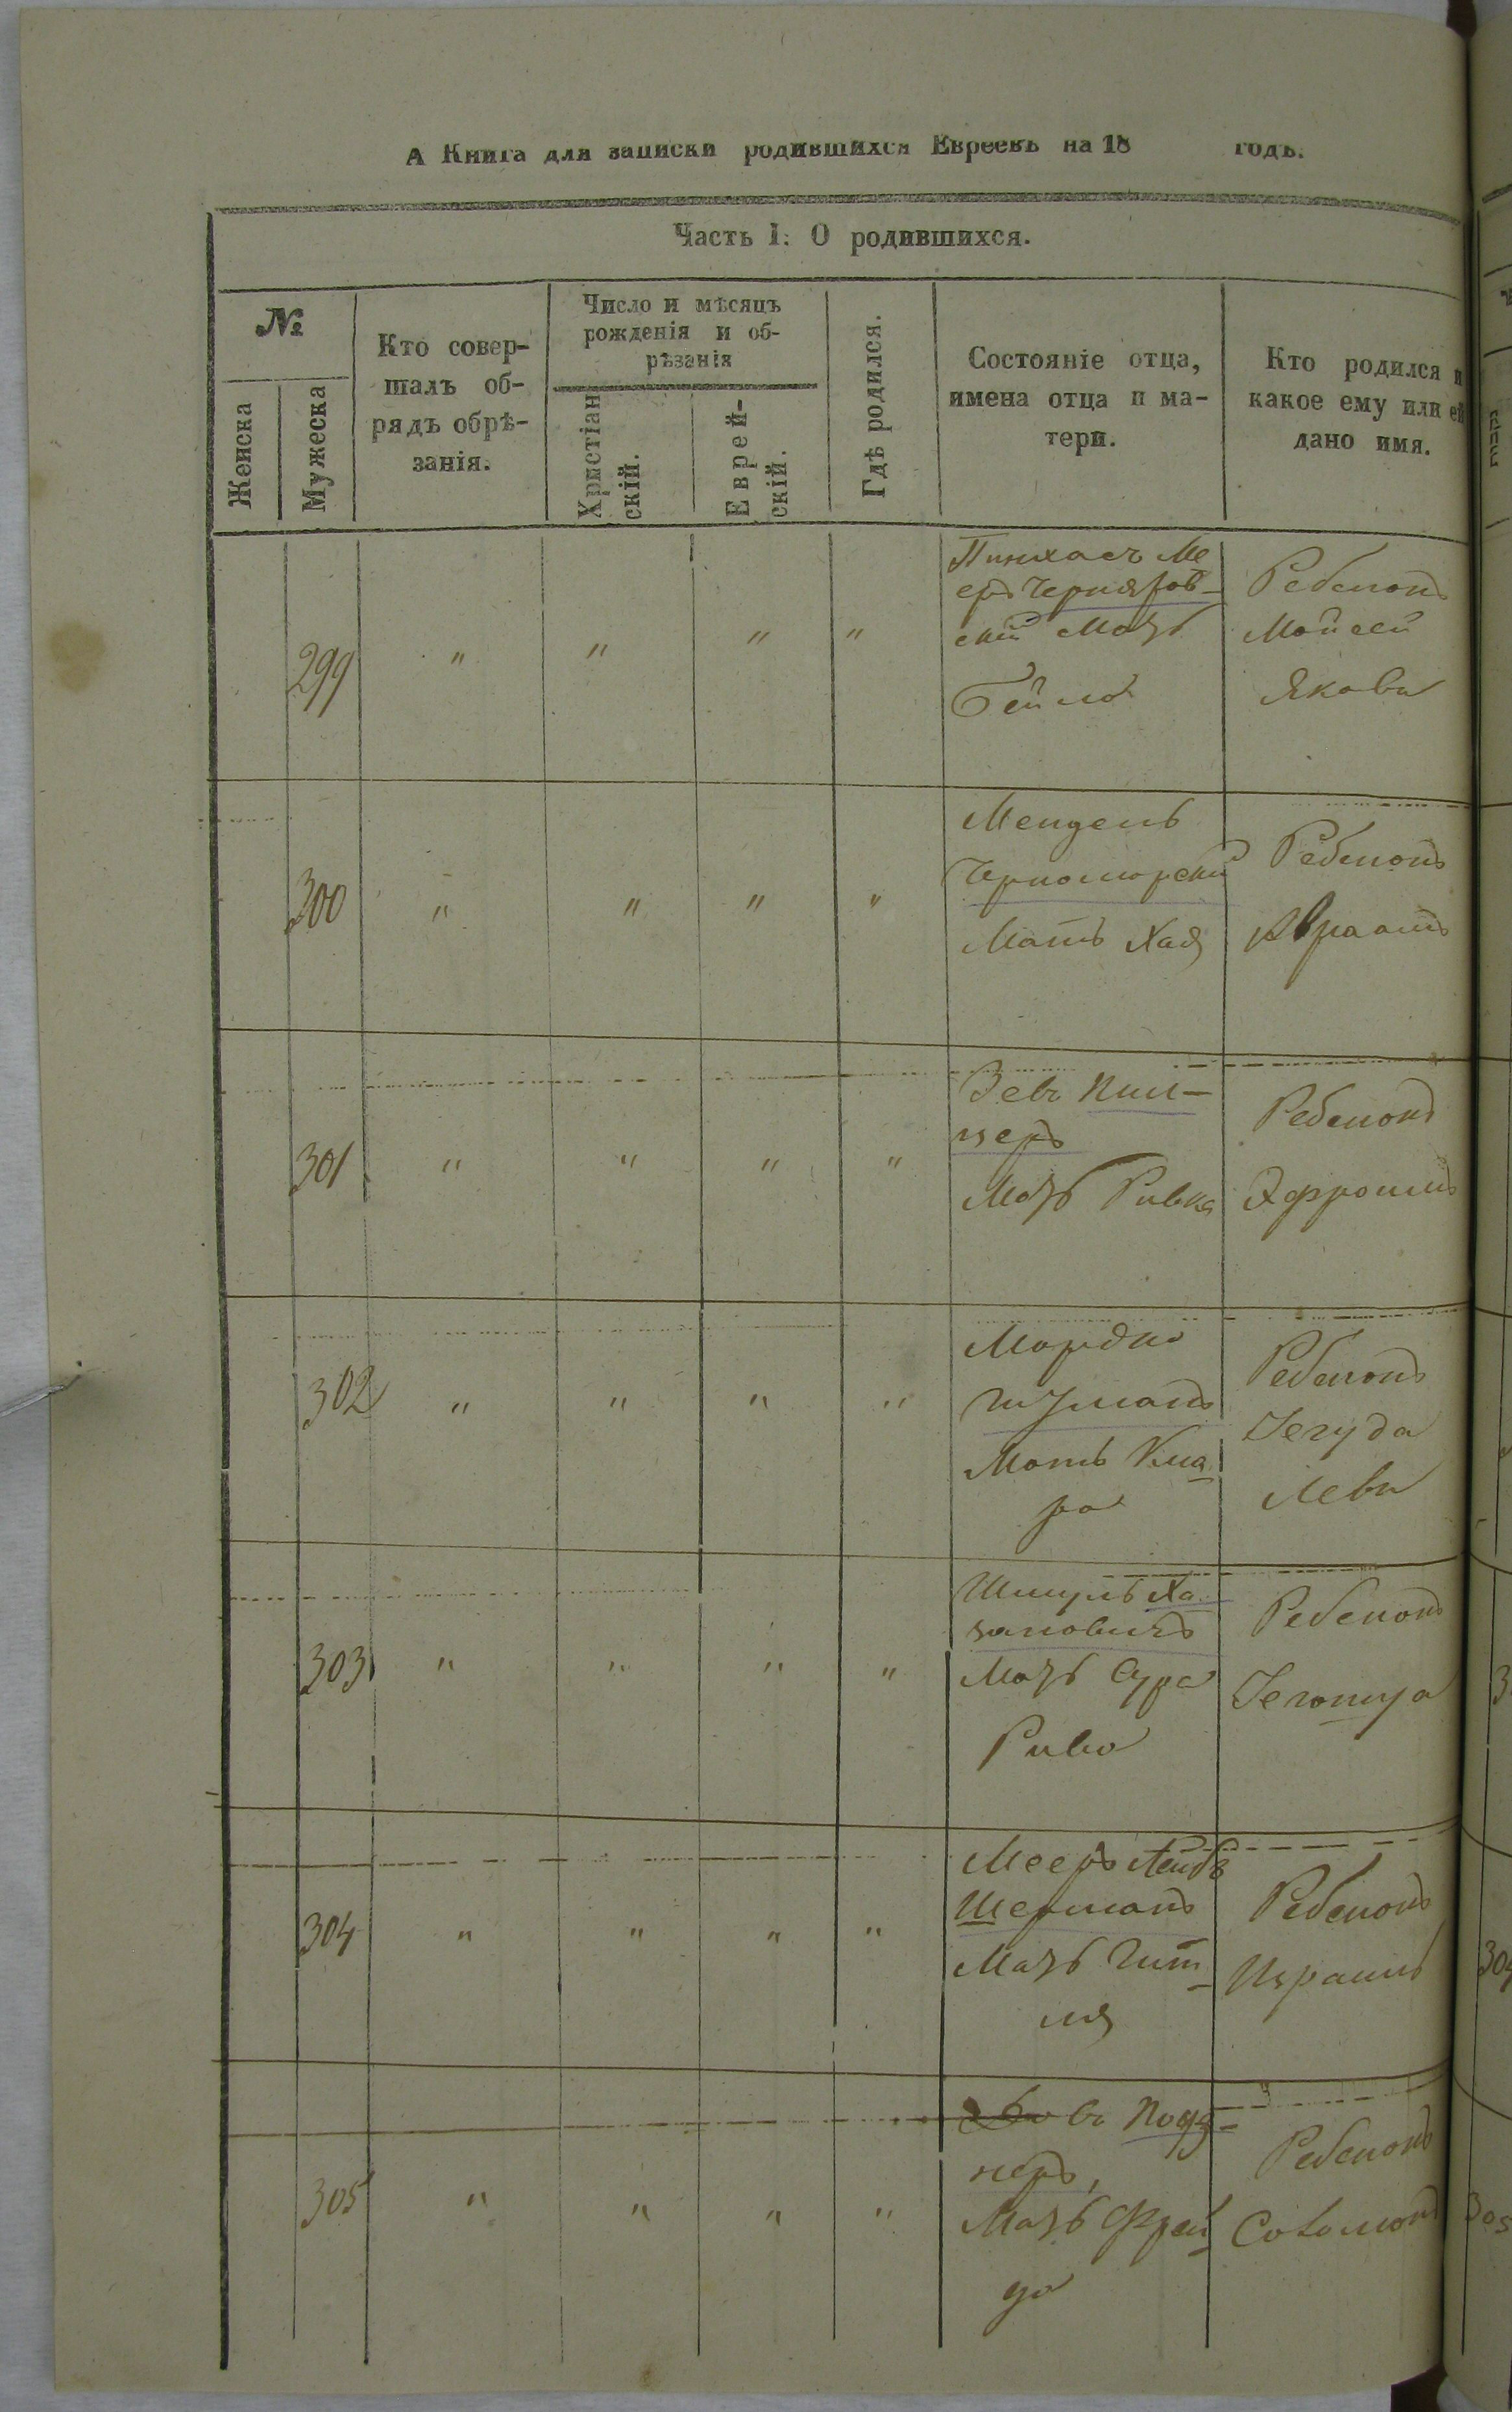 А Книга для записки родившихся Евреевъ на 18 годъ.
Часть I. О родившихся.
№
Женска
Мужеска
Кто совер-
шалъ об-
рядъ обрѣ-
занія.
Число и мѣсяцъ
рожденія и об-
рѣзанія
Христіан
скій.
Еврей-
скій.
Гдѣ родился.
Состояніе отца,
имена отца и ма-
тери.
Кто родился и
какое ему или ей
дано имя.
299 " " " "
Пинхасъ Ме
еръ
скій Мать
Бейла
Ребенокъ
Мойсей
Яковъ
300 " " " "
Мендель
Черноморскій
Мать Хая
Ребенокъ
Авраамъ
301 " " " "
Зевъ Пил-
церъ
Мать Ривка
Ребенокъ
Эфроимъ
302 " " " "
Мордко
Мать Кла-
ра
Ребенокъ
Іегуда
Левъ
303 " " " "
Шмуль Ха-
зановичъ
Мать Сура
Рива
Ребенокъ
Іегошуа
304 " " " "
Мееръ Лейбъ
Шерманъ
Мать Гит-
ля
Ребенокъ
Израиль
305 " " " "
Позд-
неръ,
Мать Фрей-
да
Ребенокъ
Соломонъ
304
305